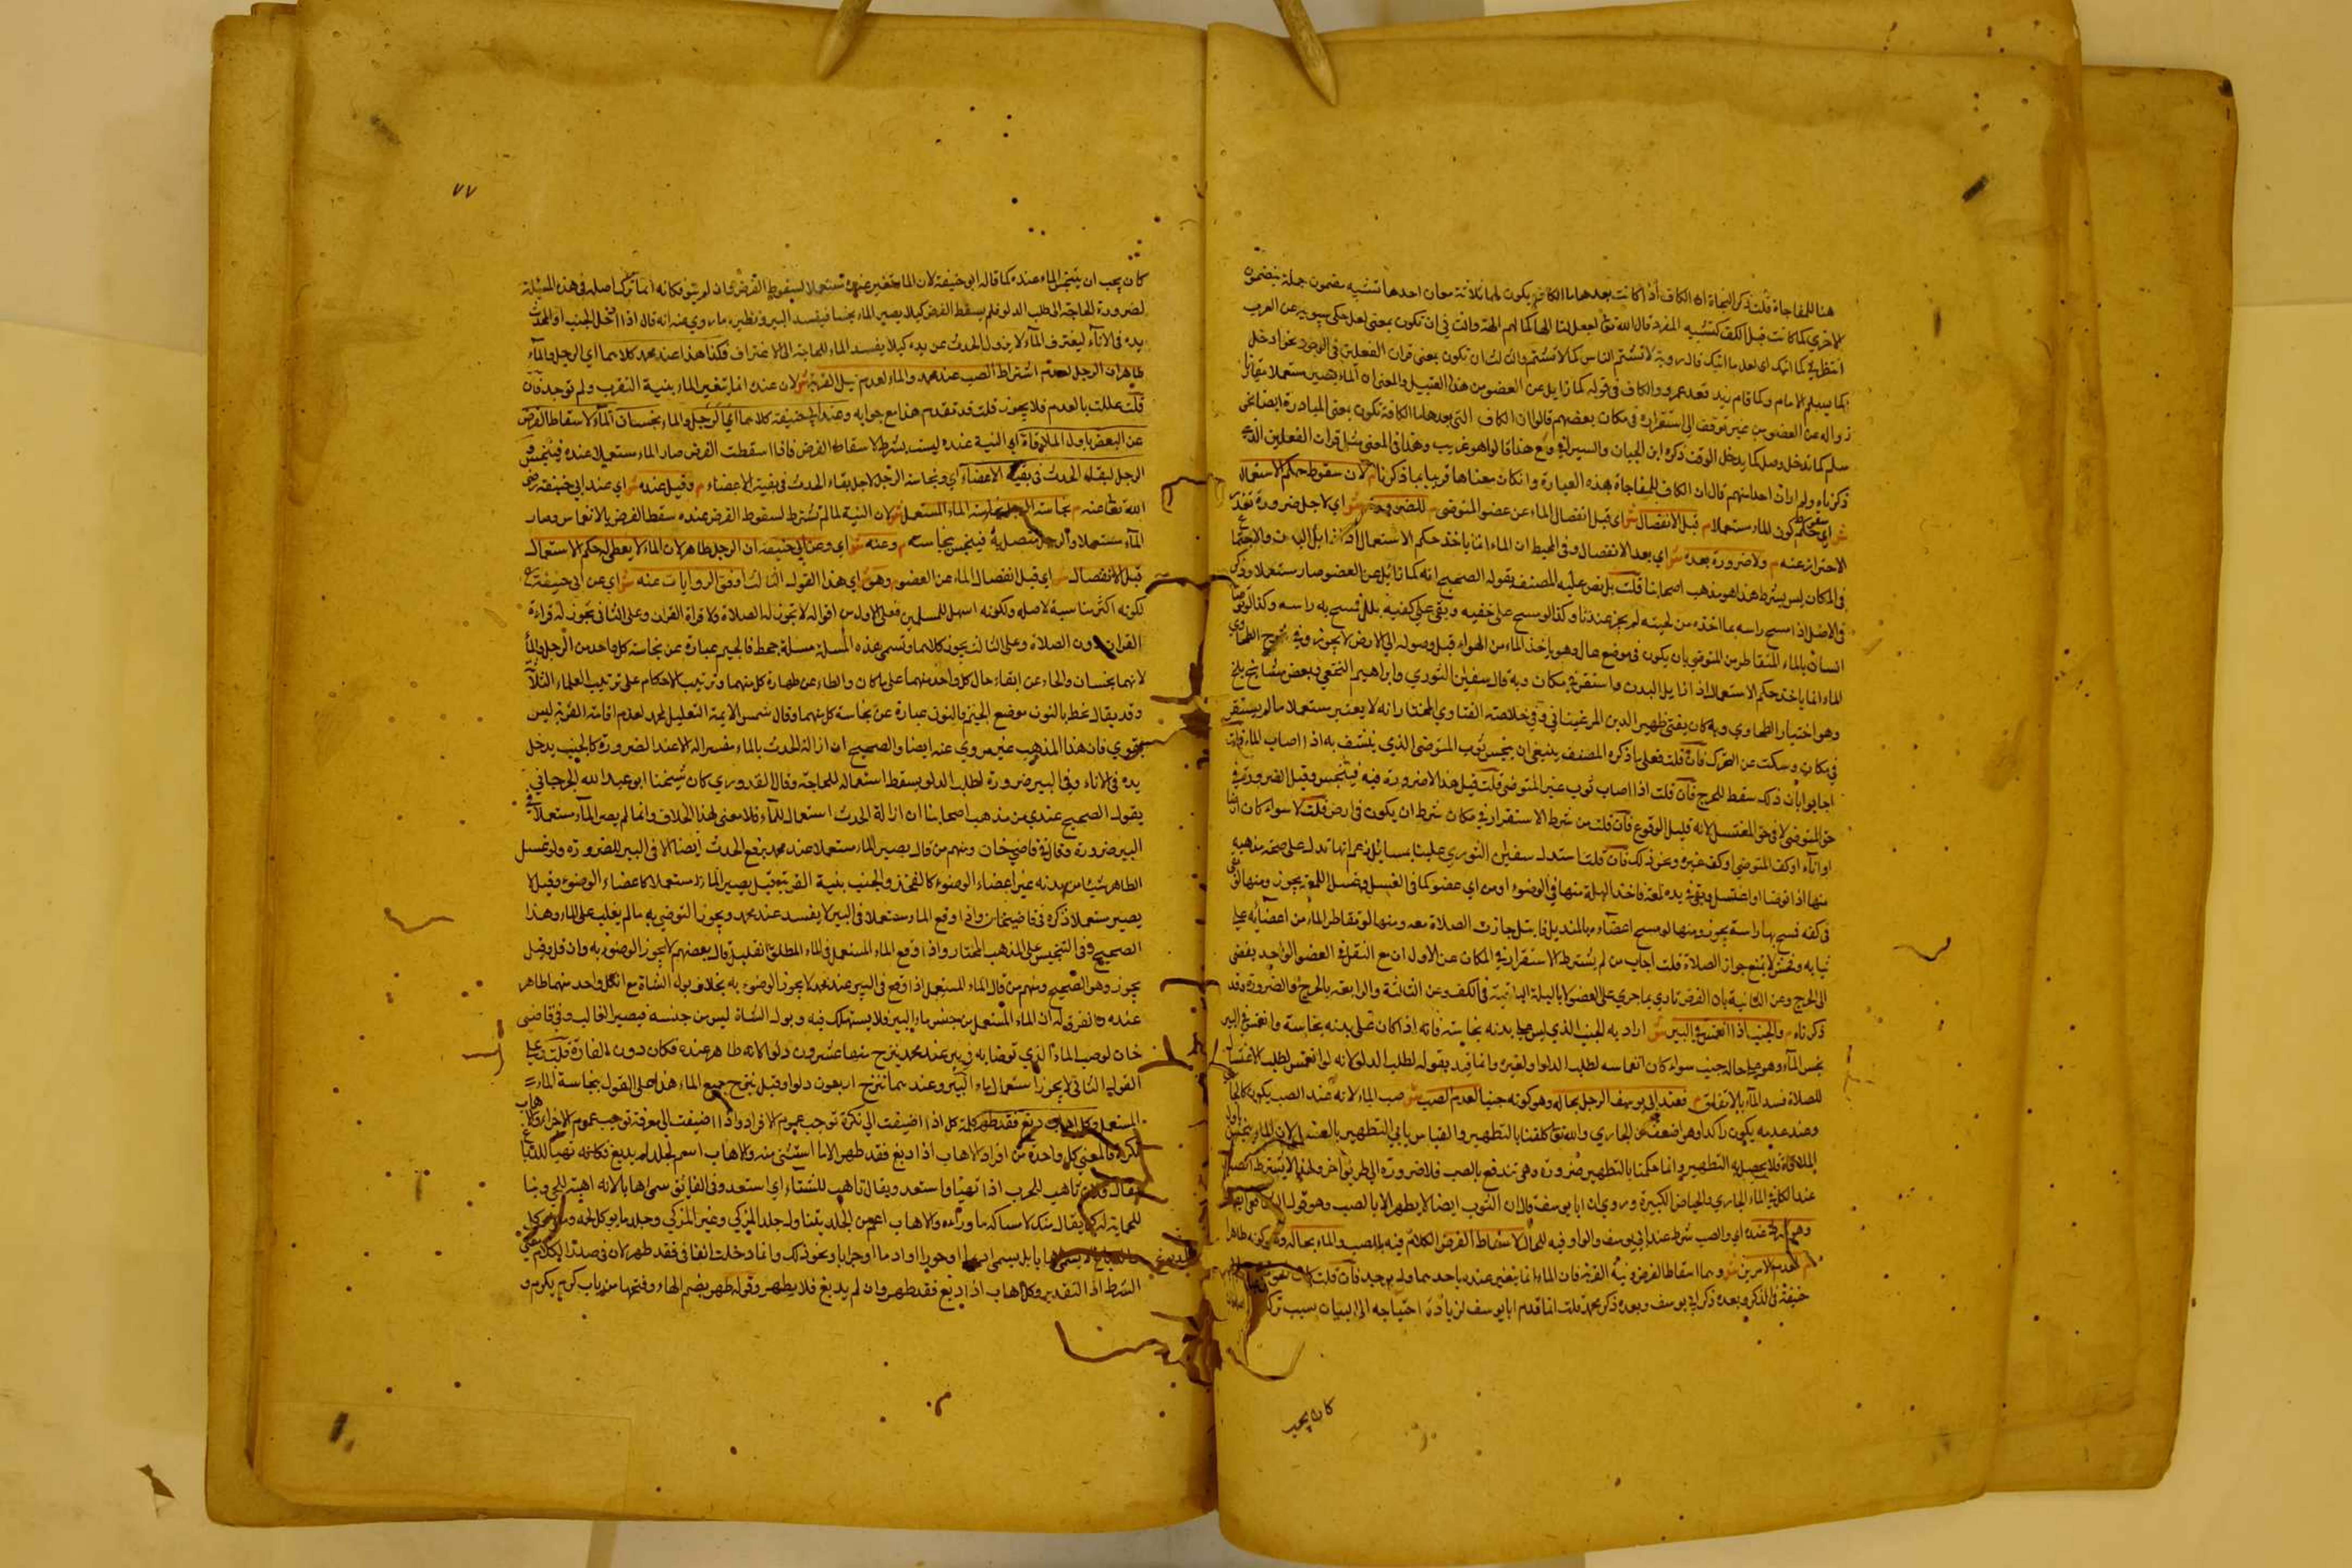 هنا للمفاجاة قلت ذكر النحاة ان الكاف اذا كانت بعدها ما الكافة يكون لها ثلاثة معان احدها تشبيه مضمون جملة بمضمون
الاخرى كما كانت قبل الكف كتشبيه المفرد قال الله تعالى اجعل لنا الها كما لهم الهة والثاني ان تكون بمعنى لعل حكى سيبويه عن العرب
انتظرني كما اتيك اي لعلما اتيك قال روبة لا تشتم الناس كما لا تشتم والثالث ان تكون بمعنى قران الفعلين في الوجود نحو ادخل
كما يسلم الامام وكما قام زيد قعد عمرو والكاف في قوله كما زايل عن العضو من هذا القبيل والمعنى ان الماء يصير مستعملا
زواله عن العضو من غير توقف الى استقراره في مكان بعضهم قالوا ان الكاف التي بعدها ما الكافة تكون بمعنى المبادرة ايضا نحو
سلم كما تدخل وصل كما يدخل الوقت ذكره ابن الخباز والسيرافي وهذا قالوا هو غريب وهذا في المعنى مثل قران الفعلين الذي
ذكرناه ولم ار ان احدا منهم قال ان الكاف للمفاجاة بهذه العبارة وان كان معناها قريبا مما ذكرنا م لان سقوط حكم الاستعمال
ش اي حكم كون الماء مستعملا م قبل الانفصال ش اي قبل انفصال الماء عن عضو المتوضي م للضرورة ش اي لاجل ضرورة تعذر
الاحتراز عنه م ولا ضرورة بعده ش اي بعد الانفصال وفي المحيط ان الماء انما ياخذ حكم الاستعمال اذا زايل البدن والاجتماع
في المكان ليس بشرط هذا هو مذهب اصحابنا قلت بل نص عليه المصنف بقوله الصحيح انه كما زايل عن العضو صار مستعملا وذكر
في الاصل اذا مسح راسه بما اخذه من لحيته لم يجز عندنا وكذا لو مسح على خفيه وبقي على كفيه بلل فمسح به راسه وكذا لو توضا
انسان بالماء المتقاطر من المتوضي بان يكون في موضع عال وهو ياخذ الماء من الهواء قبل وصوله الى الارض لا يجوز وفي شرح الطحاوي
الماء انما ياخذ حكم الاستعمال اذا زايل البدن واستقر في مكان وبه قال سفين الثوري وابراهيم النخعي وبعض مشايخ بلخ
وهو اختيار الطحاوي وبه كان يفتي ظهير الدين المرغيناني وفي خلاصة الفتاوي المختار انه لا يعتبر مستعملا ما لم يستقر
في مكان وسكت عن التحرك فان قلت فعلى ما ذكره المصنف ينبغي ان ينجس ثوب المتوضى الذي ينشف به اذا اصاب الماء قلت
اجابوا بان ذلك سقط للحرج فان قلت اذا اصاب ثوب غير المتوضى قلت قيل هذا لا ضرورة فيه فيتنجس وقيل الضرورة في
حق المتوضي لا في حق المغتسل لانه قليل الوقوع فان قلت من شرط الاستقرار في مكان شرط ان يكون في ارض قلت لا سواء كان ارضا
او اناء او كف المتوضى او كف غيره ونحو ذلك فان قلت استدل سفيان الثوري علينا بمسائل زعم انها تدل على صحة مذهبه
منها اذا توضا او اغتسل وبقي في يده لمعة فاخذ البلة منها في الوضوء او من اي عضو كما في الغسل وغسل اللمعة يجوز ومنها لو بقي
في كفه فمسح بها راسه يجوز ومنها لو مسح اعضاءه بالمنديل فابتل جازت الصلاة معه ومنها لو تقاطر الماء من اعضائه على
ثيابه وفحش لا يمنع جواز الصلاة قلت اجاب من لم يشترط الاستقرار في المكان عن الاول ان مع النقل في العضو الواحد يفضي
الى الحرج وعن الثانية بان الفرض تادي بما جرى على العضو لا بالبلة الباقية في الكف وعن الثالثة والرابعة بالحرج والضرورة وقد
ذكرناه م والجنب اذا انغمس في البير ش اراد به الجنب الذي ليس على بدنه نجاسة فانه اذا كان على بدنه نجاسة وانغمس في البير
نجس الماء وهو على حاله جنب سواء كان انغماسه لطلب الدلو او لغيره وانما قيد بقوله لطلب الدلو لانه لو انغمس لطلب الاغتسال
للصلاة فسد الماء بالاتفاق م فعند ابي يوسف الرجل بحاله وهو كونه جنبا لعدم الصب ش صب الماء لانه عند الصب يكون كالجاري
وعند عدمه يكون راكدا وهو اضعف من الجاري والله تعالى كلفنا بالتطهير والقياس يابى التطهير بالغسل لان الماء يتنجس باول
الملاقاة فلا يحصل به التطهير وانما حكمنا بالتطهير ضرورة وهي تندفع بالصب فلا ضرورة الى طريق اخر ولهذا لا يشترط الصب
عند الكل في الماء الجاري والحياض الكبيرة وروي ان ابا يوسف قال ان الثوب ايضا لا يطهر الا بالصب وهو قول الشافعي ايضا
وهو شرط عنده اي والصب شرط عند ابي يوسف والواو فيه للحال لاسقاط الفرض الكلام فيه بالصب والماء بحاله وهو كونه طاهرا
م لعدم الامرين ش وهما اسقاط الفرض ونية القربة فان الماء انما يتغير عنده باحدهما ولم يوجد فان قلت كان
حنيفة في الذكر وبعده ذكر ابي يوسف وبعده ذكر محمد قلت انما قدم ابا يوسف لزيادة احتياجه الى البيان بسبب ترك
كان يجب
٧٧
كان يجب ان يتنجس الماء عنده كما قاله ابي حنيفة لان الماء يتغير عنده مستعملا لسقوط الفرض وان لم ينو فكانه انما ترك اصله في هذه المسئلة
لضرورة الحاجة الى طلب الدلو فلم يسقط الفرض كيلا يصير الماء نجسا فيفسد البير ونظيره ما روي عنه انه قال اذا ادخل الجنب او المحدث
يده في الاناء ليغترف الماء لا يزول الحدث عن يده كيلا يفسد الماء للحاجة الى الاغتراف فكذا هذا عند محمد كلاهما اي الرجل والماء
طاهران الرجل لعدم اشتراط الصب عند محمد والماء لعدم نية القربة ش لان عنده انما يتغير الماء بنية التقرب ولم توجد فان
قلت عللت بالعدم فلا يجوز قلت قد تقدم هذا مع جوابه وعند ابي حنيفة كلاهما اي الرجل والماء نجسان الماء لاسقاط الفرض
عن البعض باول الملاقاة اي النية عنده ليست بشرط لاسقاط الفرض فاذا اسقطت الفرض صار الماء مستعملا عنده فيتنجس و
الرجل لبقاء الحدث في بقية الاعضاء اي ونجاسة الرجل لاجل بقاء الحدث في بقية الاعضاء م وقيل عنده ش اي عند ابي حنيفة رضي
الله تعالى عنه م نجاسة الرجل بنجاسة الماء المستعمل ش لان النية لما لم تشترط لسقوط الفرض عنده سقط الفرض بالانغماس وصار
الماء مستعملا والرجل متصل به فيتنجس بنجاسته م وعنه ش اي وعن ابي حنيفة ان الرجل طاهر لان الماء لا يعطى له حكم الاستعمال
قبل الانفصال ش اي قبل انفصال الماء عن العضو م وهو ش اي هذا القول الثالث اوفق الروايات عنه ش اي عن ابي حنيفة
لكونه اكثر مناسبة لاصله ولكونه اسهل للمسلمين فعلى الاول من اقواله لا تجوز له الصلاة ولا قراة القران وعلى الثاني تجوز له قراءة
القران دون الصلاة وعلى الثالث يجوز كلاهما وتسمى هذه المسئلة مسئلة جحط فالجيم عبارة عن نجاسة كل واحد من الرجل والماء
لانهما نجسان والحاء عن ابقاء حال كل واحد منهما على ما كان والطاء عن طهارة كل منهما وترتيب الاحكام على ترتيب العلماء الثلاثة
وقد يقال نحط بالنون موضع الجيم فالنون عبارة عن نجاسة كل منهما وقال شمس الايمة التعليل لمحمد لعدم اقامة القربة ليس
بقوي فان هذا المذهب غير مروي عنه ايضا والصحيح ان ازالة الحدث بالماء مفسد له الا عند الضرورة كالجنب يدخل
يده في الاناء وفي البير ضرورة لطلب الدلو يسقط استعماله للحاجة وقال القدوري كان شيخنا ابو عبد الله الجرجاني
يقول الصحيح عندي من مذهب اصحابنا ان ازالة الحدث استعمال للماء فلا معنى لهذا الخلاف وانما لم يصر الماء مستعملا في
البير ضرورة وقال قاضي خان ومنهم من قال يصير الماء مستعملا عند محمد برفع الحدث ايضا الا في البير للضرورة ولو غسل
الطاهر شيئا من بدنه غير اعضاء الوضوء كالفخذ والجنب بنية القربة قيل يصير الماء مستعملا كاعضاء الوضوء وقيل لا
يصير مستعملا ذكره في قاضيخان واذا وقع الماء مستعملا في البير لا يفسد عند محمد ويجوز التوضي به ما لم يغلب على الماء وهذا
الصحيح وفي التجنيس على المذهب المختار واذا وقع الماء المستعمل في الماء المطلق القليل قال بعضهم لا يجوز الوضوء به وان قل وقيل
يجوز وهو الصحيح ومنهم من قال الماء المستعمل اذا وقع في البير عند محمد لا يجوز الوضوء به بخلاف بول الشاة مع ان كل واحد منهما طاهر
عنده والفرق له ان الماء المستعمل من جنس ماء البير فلا يستهلك فيه وبول الشاة ليس من جنسه فيصير الغالب وفي قاضي
خان لو صب الماء الذي توضا به في بير عند محمد ينزح منها عشرون دلوا لانه طاهر عنده فكان دون الفارة قلت وعلى
القول الثاني لا يجوز استعمال ماء البير وعندهما تنزح اربعون دلوا وقيل ينزح جميع الماء هذا على القول بنجاسة الماء
المستعمل وكل اهاب دبغ فقد طهر كلمة كل اذا اضيفت الى نكرة توجب عموم الافراد واذا اضيفت الى معرفة توجب عموم الاجزاء
نكرة والمعنى كل واحدة من افراد الاهاب اذا دبغ فقد طهر الا ما استثنى منه والاهاب اسم لجلد لم يدبغ فكانه تهيأ للدباغ
يقال فلان تاهب للحرب اذا تهيا واستعد ويقال تاهب للشتاء اي استعد وفي الفايق سمي اهابا لانه اهبة للحي وبنا
للحماية له كما يقال مسك لامساكه ما وراءه والاهاب اعم من الجلد يتناول جلد المذكي وغير المذكي وجلد ما يوكل لحمه وما لا يوكل
لا يسمى اهابا بل يسمى اديما او حورا او ادما او جرابا ونحو ذلك وانما دخلت الفا في فقد طهر لان في صدر الكلام معنى
الشرط اذ التقدير وكل اهاب اذا دبغ فقد طهر وان لم يدبغ فلا يطهر وقوله طهر بضم الهاء وفتحها من باب كرم يكرم و